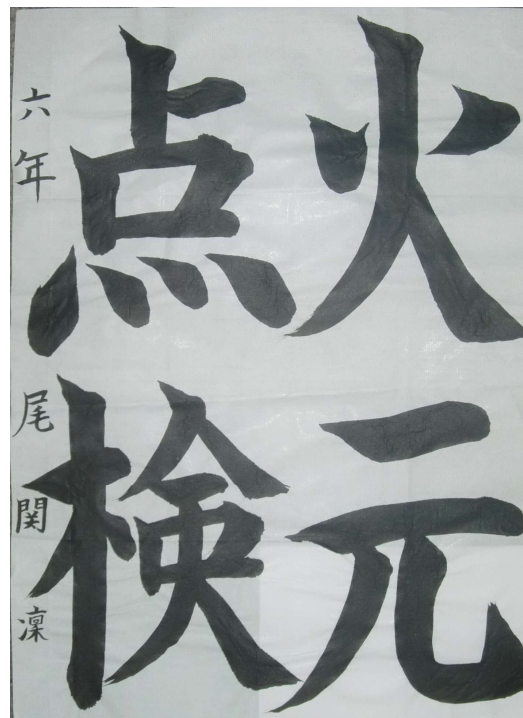 火元
点検
六年 尾関凜